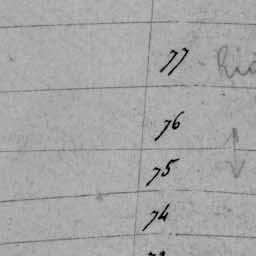 77
76
75
74